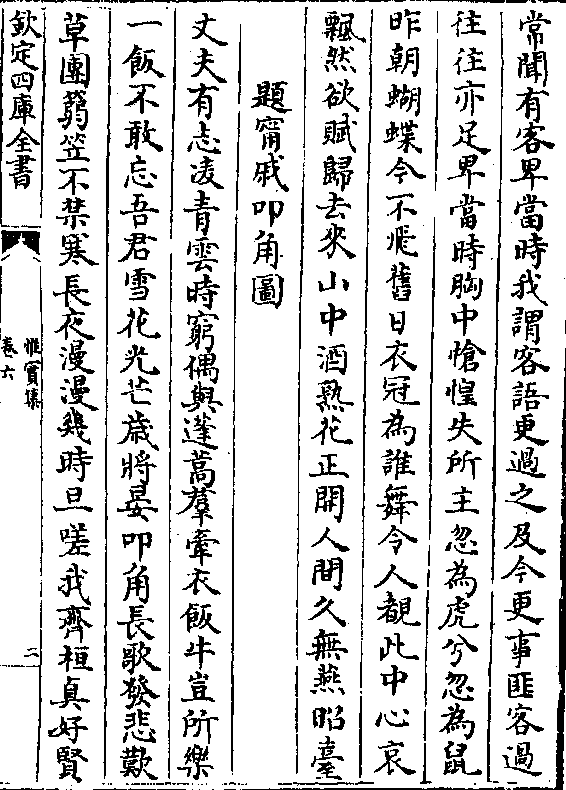 常聞有客卑當時我謂客語更過之及今更事匪客過
往往亦足卑當時胸中愴惶失所主忽為虎兮忽為鼠
昨朝蝴蝶今不飛舊日衣冠為誰舞令人覩此中心哀
飄然欲賦歸去來山中酒熟花正開人間久無燕昭臺
題甯戚叩角圖
丈夫有志凌青雲時窮偶與蓬蒿羣牽衣飯牛豈所樂
一飯不敢忘吾君雪花光芒歲將晏叩角長歌發悲歎
草團蒻笠不禁寒長夜漫漫幾時旦嗟我齊桓真好賢
欽定四庫全書
惟實集
卷六
二